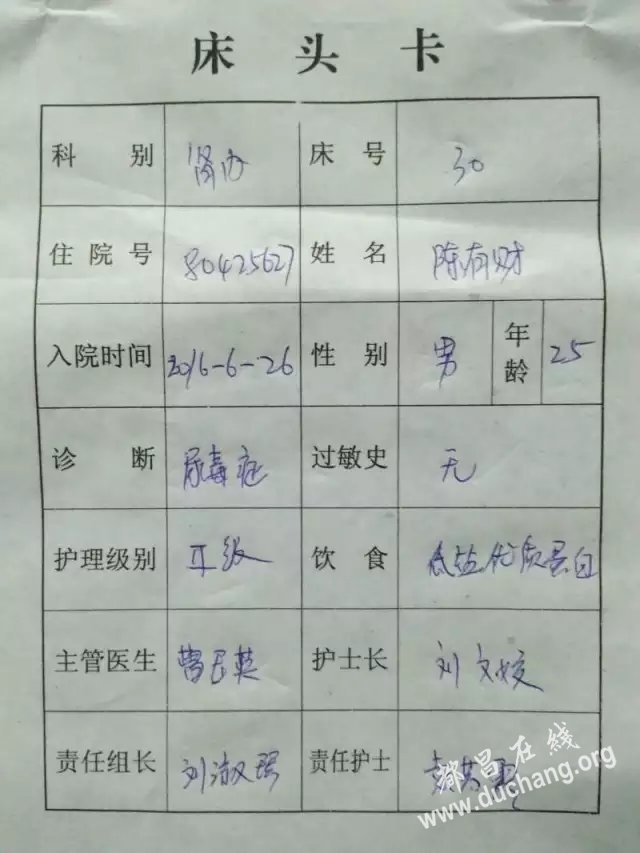 床头卡
科别 肾内 床号 30
住院号 80425627 姓名 陈有财
入院时间 2016-6-26 性别 男 年龄 25
诊断 尿毒症 过敏史 无
护理级别 II级 饮食 低盐优质蛋白
主管医生 曹 英 护士长 刘文姣
责任组长 刘淑 责任护士
都昌在线
www.duchang.org